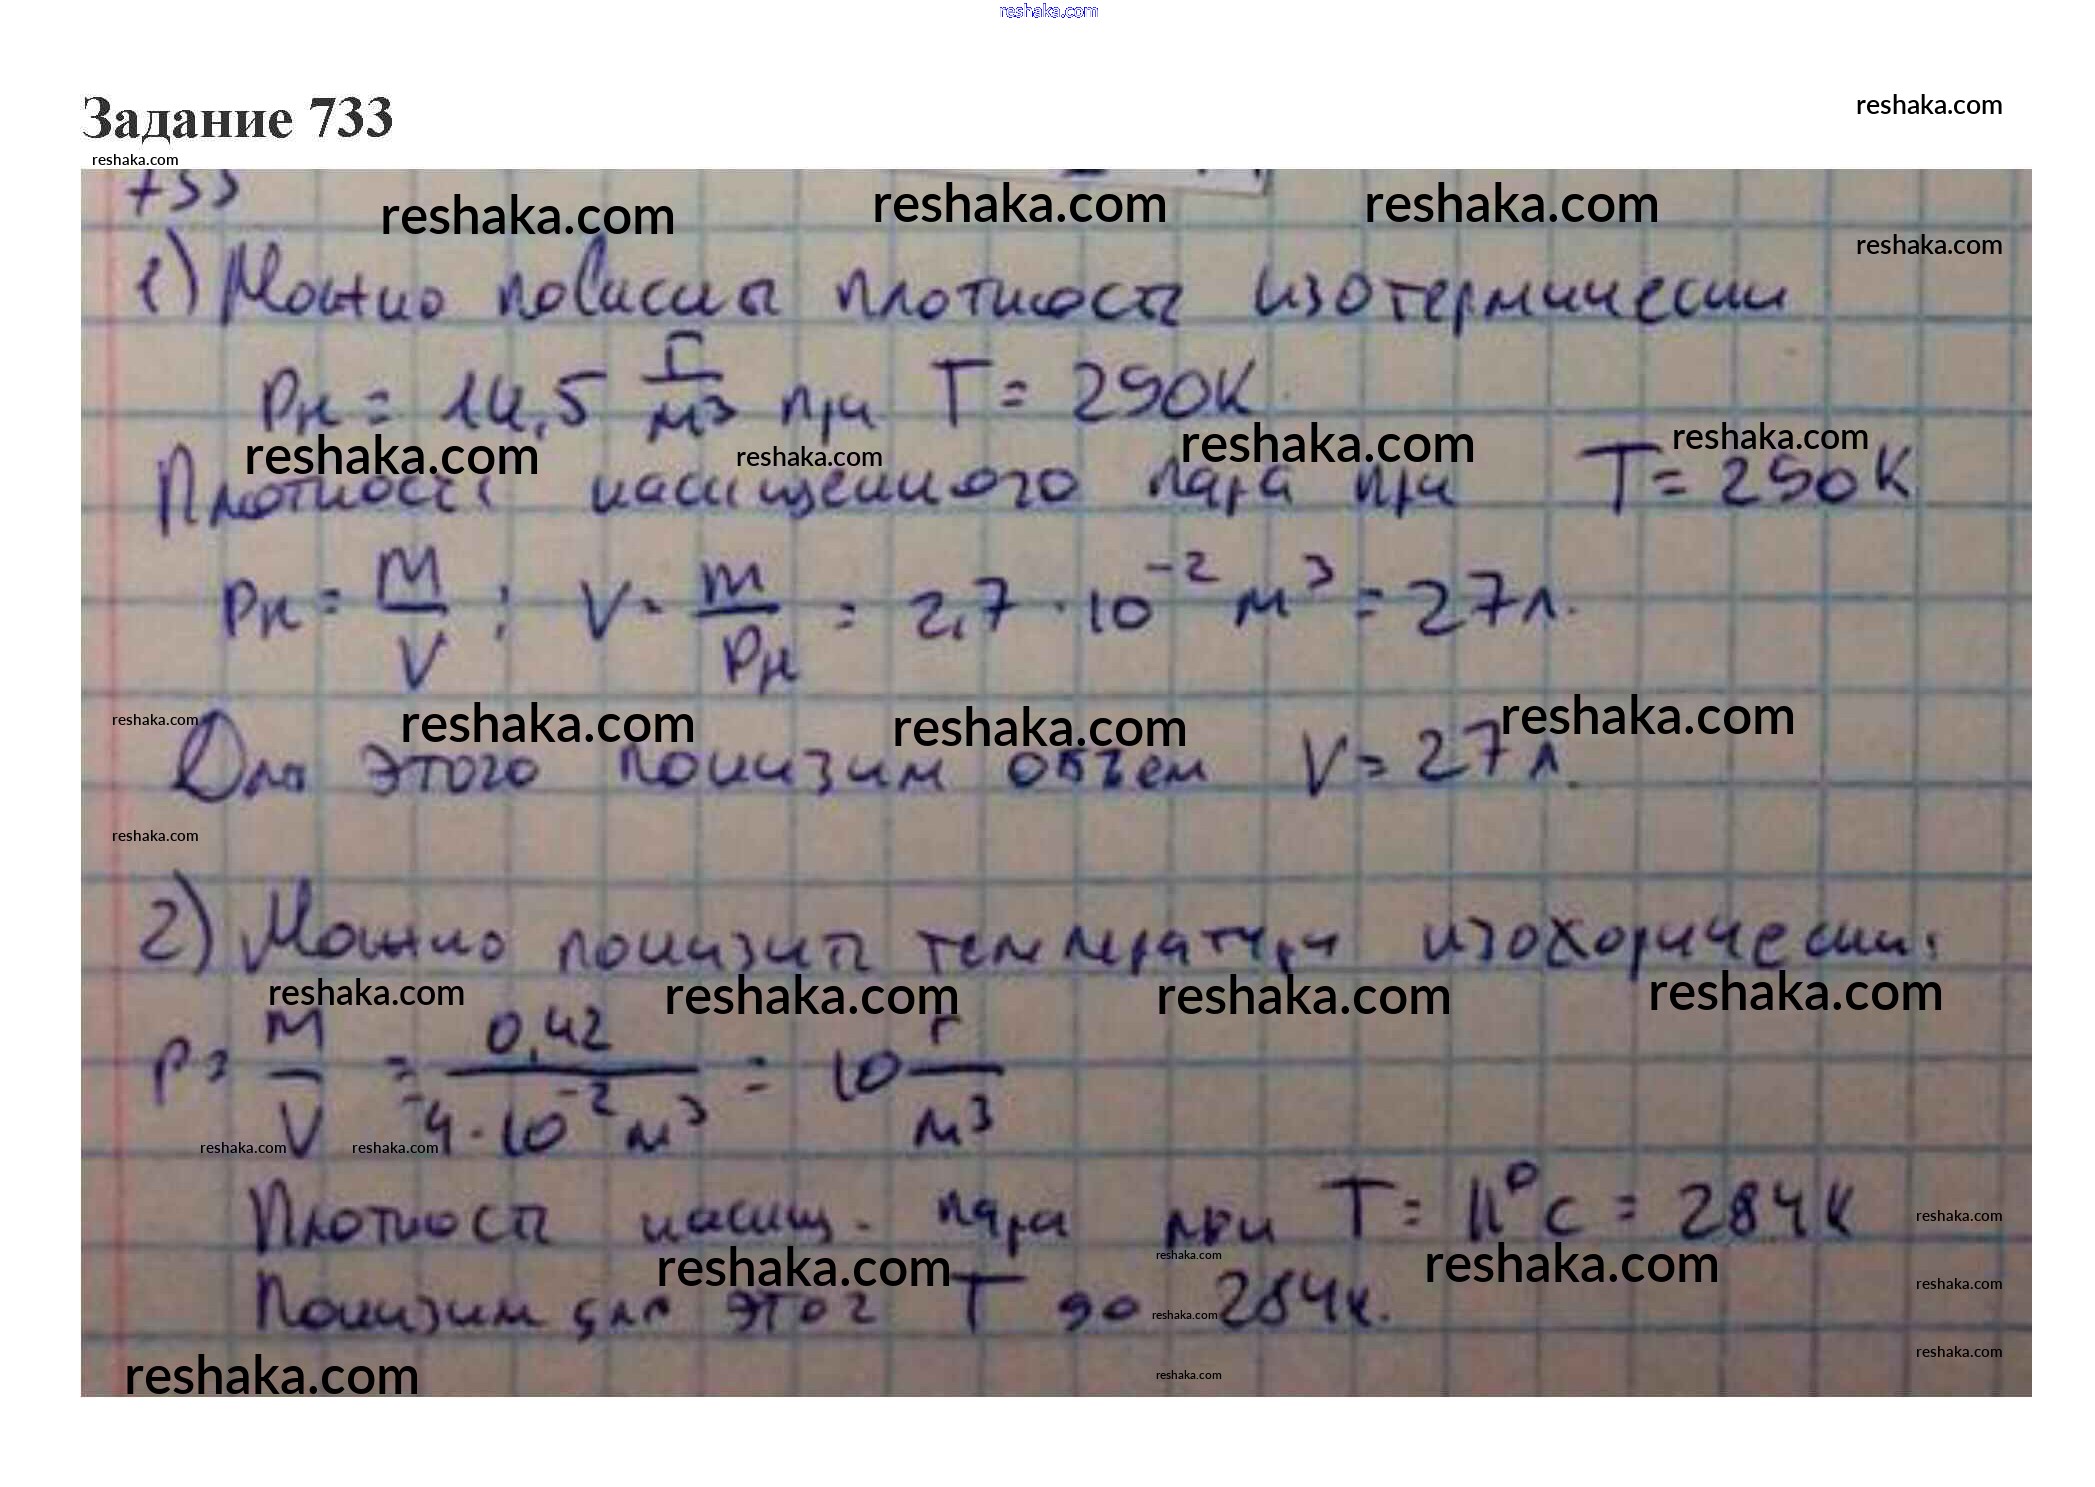 reshaka.com
Задание 733
reshaka.com
reshaka.com
733
reshaka.com reshaka.com reshaka.com
reshaka.com
1) Можно повысить плотность изотермически
Pн = 14,5 г/м³ при T = 290К.
reshaka.com reshaka.com reshaka.com reshaka.com
Плотность насыщенного пара при T = 290К
Pн = m/V ; V = m/Pн = 2,7 · 10⁻² м³ = 27л.
reshaka.com reshaka.com reshaka.com reshaka.com
Для этого понизим объем V = 27л.
reshaka.com
2) Можно понизить температуру изохорически:
reshaka.com reshaka.com reshaka.com reshaka.com
P = m/V = 0,42/4·10⁻² м³ = 10 г/м³
reshaka.com reshaka.com
Плотность насыщ. пара при T = 11°C = 284К
reshaka.com
reshaka.com reshaka.com reshaka.com
reshaka.com
Понизим для этог T до 284к.
reshaka.com
reshaka.com
reshaka.com reshaka.com